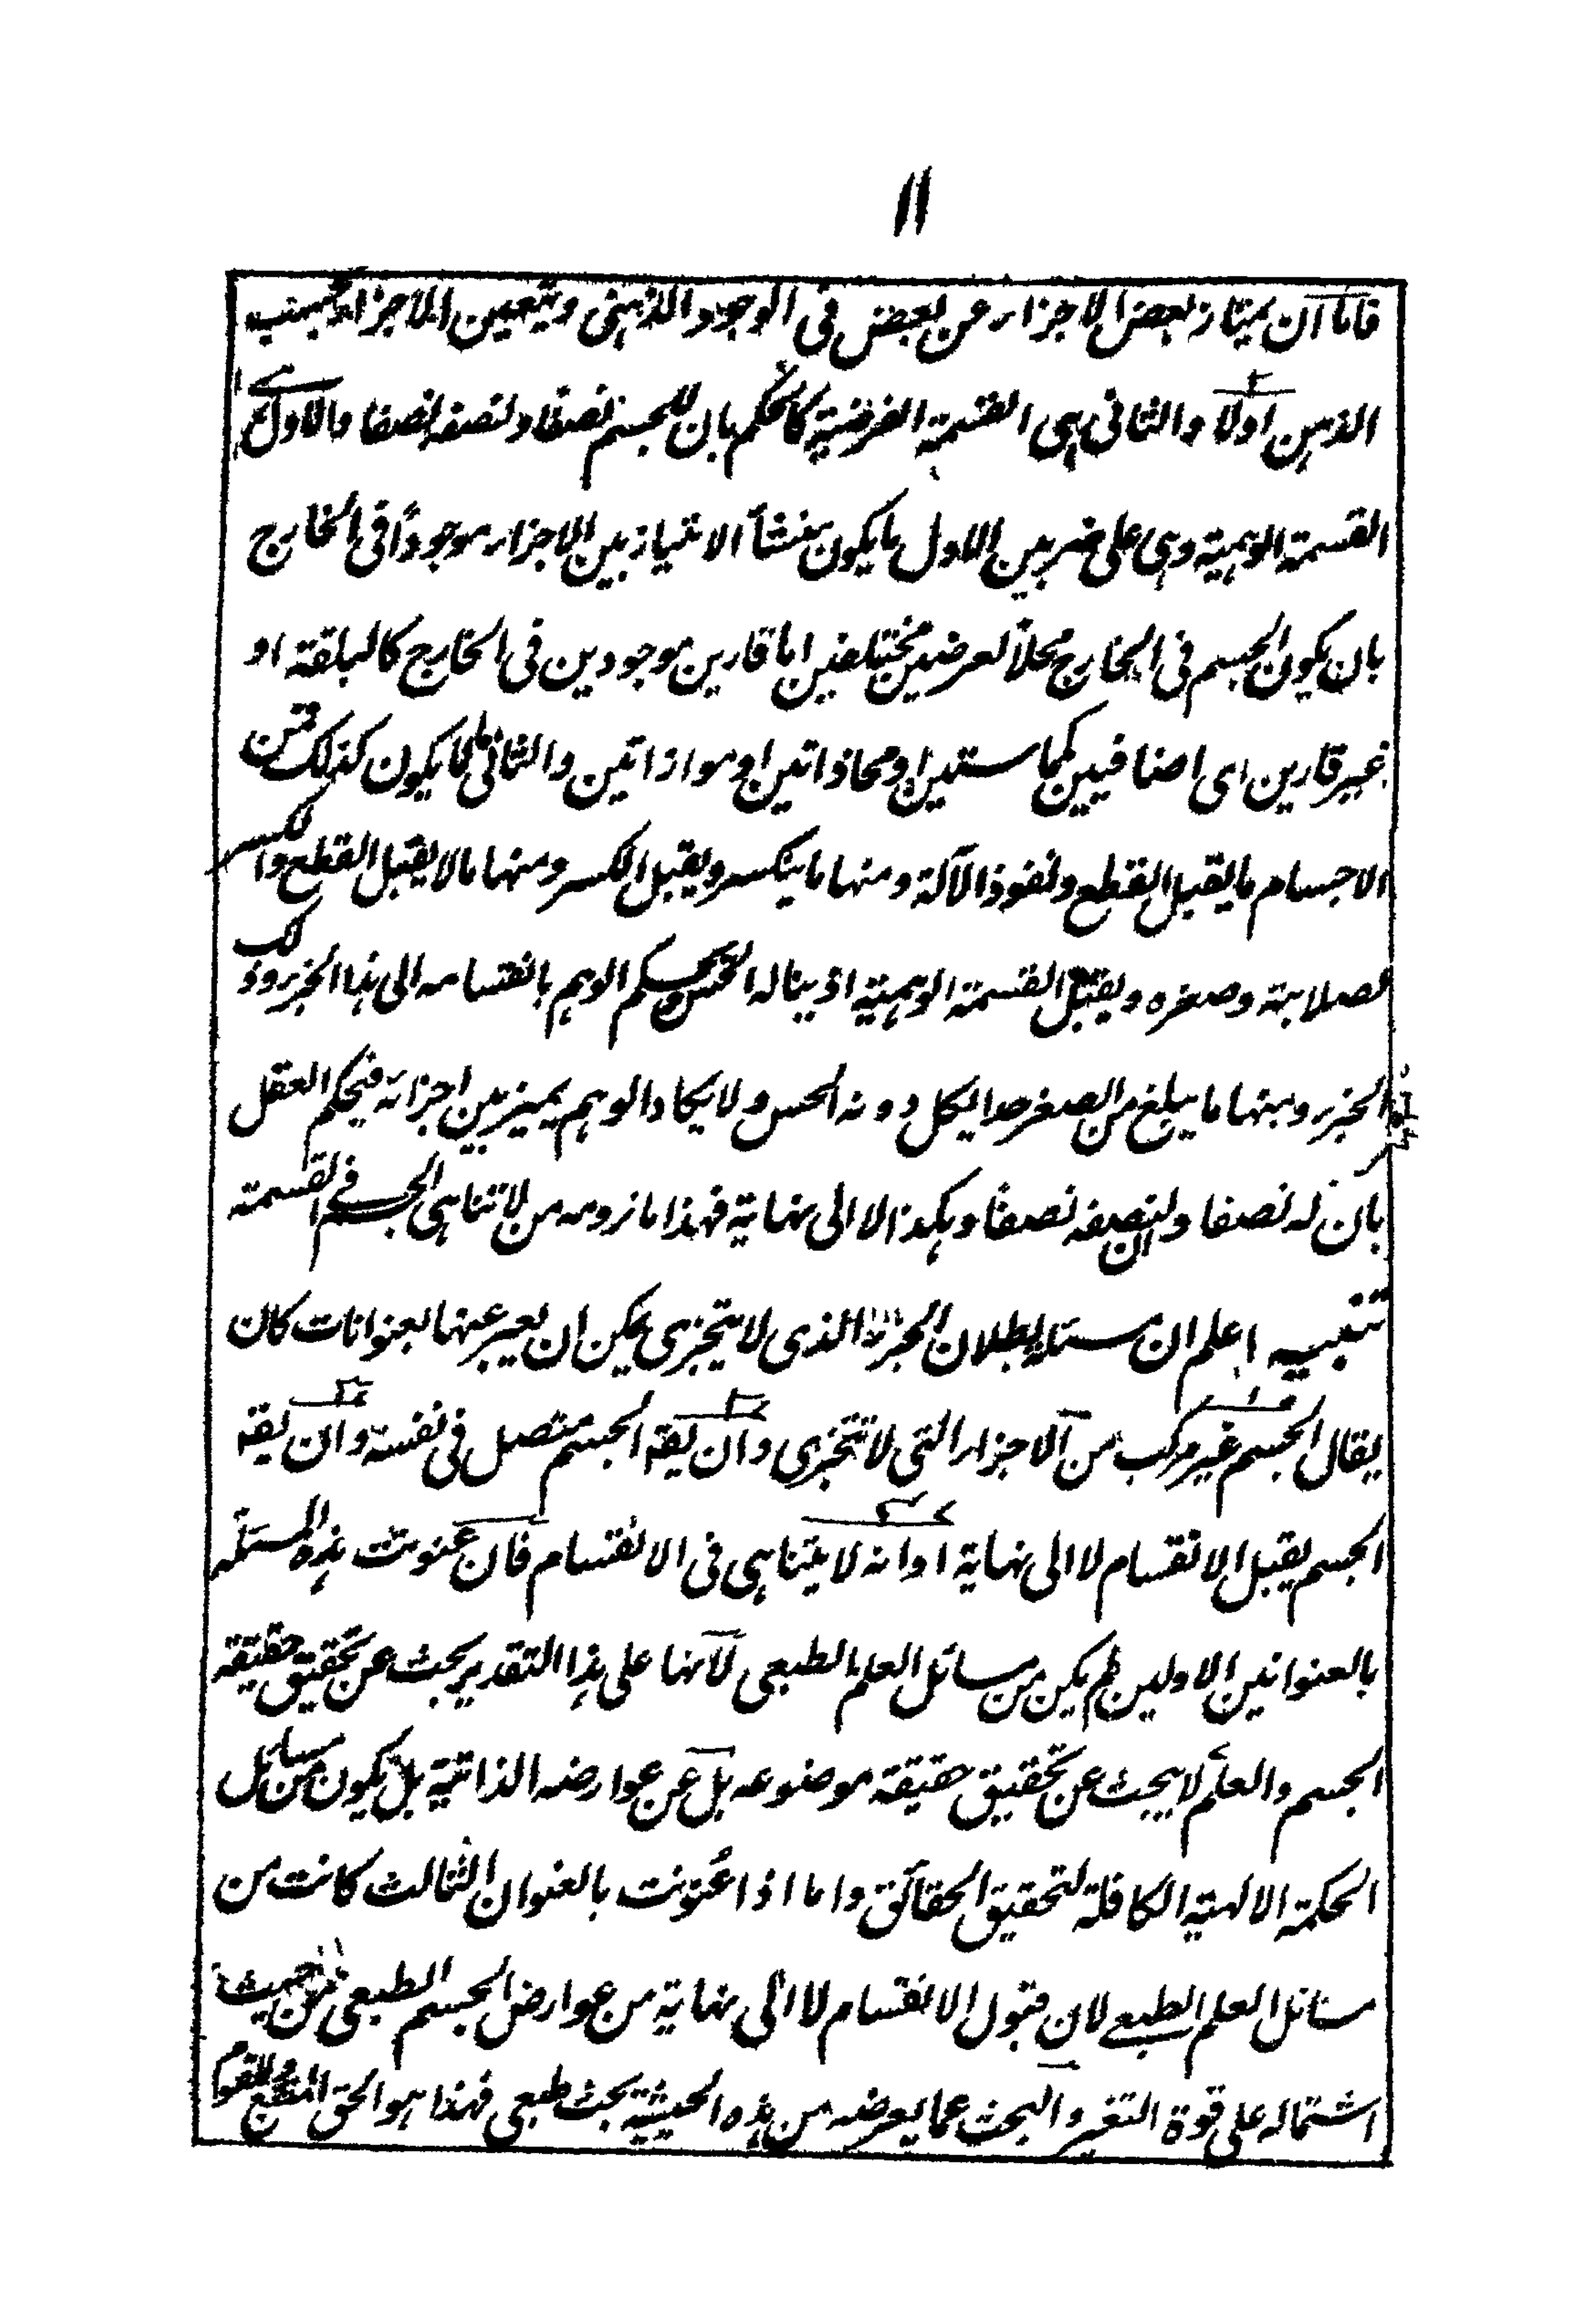 ۱۱
فاما ان یمتاز بعض الاجزاء عن بعض فی الوجود الذہنی ویتعین الاجزاء بحسب
الذہن اولا والثانی ہی القسمۃ الفرضیۃ کالحکم بان للجسم نصفا ولنصفہ نصفا والاول ہی
القسمۃ الوہمیۃ وہی علی ضربین الاول ما یکون منشأ الامتیاز بین الاجزاء موجودًا فی الخارج
بان یکون الجسم فی الخارج محلا لعرضین مختلفین اما قارین موجودین فی الخارج کالبلقۃ او
غیر قارین ای اضافیین کمماستین او محاذاتین او موازاتین والثانی ما لا یکون کذلک فمن
الاجسام ما یقبل القطع ونفوذ الآلۃ ومنہا ما ینکسر ویقبل الکسر ومنہا ما لا یقبل القطع والکسر
لصلابتہ وصغرہ ویقبل القسمۃ الوہمیۃ اذ ینالہ الحس ویحکم الوہم بانقسامہ الی ہذا الجزء وذلک
الجزء ومنہا ما یبلغ من الصغر حدا یکل دونہ الحس ولا یکاد الوہم یمیز بین اجزائہ فیحکم العقل
بان لہ نصفا ولنصفہ نصفا وہکذا لا الی نہایۃ فہذا ما نرومہ من لا تناہی الجسم فی القسمۃ
تنبیہ اعلم ان مسئلۃ بطلان الجزء الذی لا یتجزی یمکن ان یعبر عنہا بعنوانات کان
یقال الجسم غیر مرکب من الاجزاء التی لا تتجزی وان یقہ الجسم متصل فی نفسہ وان یقہ
الجسم یقبل الانقسام لا الی نہایۃ او انہ لا یتناہی فی الانقسام فان عنونت ہذہ المسئلۃ
بالعنوانین الاولین لم یکن من مسائل العلم الطبعی لانہا علی ہذا التقدیر بحث عن تحقیق حقیقۃ
الجسم والعلم لا یبحث عن تحقیق حقیقۃ موضوعہ بل عن عوارضہ الذاتیۃ بل یکون من مسائل
الحکمۃ الالہیۃ الکافلۃ لتحقیق الحقائق واما اذا عُنونت بالعنوان الثالث کانت من
مسائل العلم الطبعی لان قبول الانقسام لا الی نہایۃ من عوارض الجسم الطبعی من حیث
اشتمالہ علی قوۃ التغیر والبحث عما یعرضہ من ہذہ الحیثیۃ بحث طبعی فہذا ہو الحق